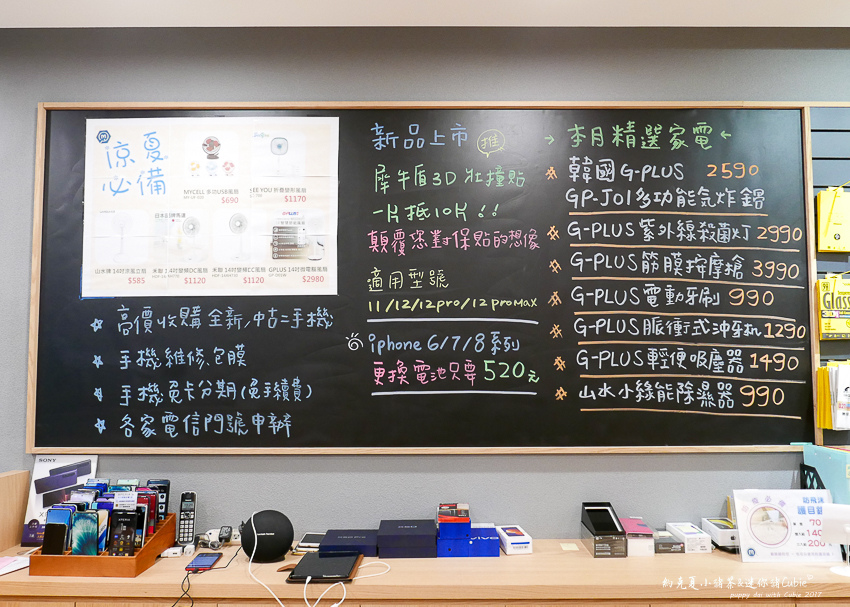 涼夏
必備
MYCELL 多功USB風扇
$690
EE YOU 折疊變形風扇
$1170
日本
山水牌 14吋涼風立扇
$585
14吋變頻DC風扇
$1120
14吋變頻EC風扇
$1120
GPLUS 14吋微電腦風扇
$2980
☆ 高價收購全新,中古二手機
☆ 手機維修.包膜
☆ 手機免卡分期(免手續費)
☆ 各家電信門號申辦
新品上市 推
犀牛盾3D壯撞貼
一片抵10片!!
顛覆您對保貼的想像
適用型號
11/12/12pro/12 pro Max
iphone 6/7/8系列
更換電池只要520元
→ 本月精選家電 ←
韓國G-PLUS 2590
GP-J01多功能気炸鍋
G-PLUS紫外線殺菌灯 2990
G-PLUS筋膜按摩槍 3990
G-PLUS電動牙刷 990
G-PLUS脈衝式沖牙机 1290
G-PLUS輕便吸塵器 1490
山水小綠能除濕器 990
Glass
SONY
XPERIA
vivo
護目鏡
70
140
200
約克夏小諸茶&迷你諸Cubie
puppy dei with Cubie 2017